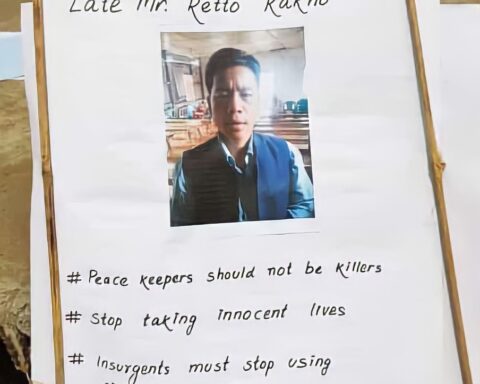 Late Mr.
# Peace keepers should not be killers
# Stop taking innocent lives
# Insurgents must stop using